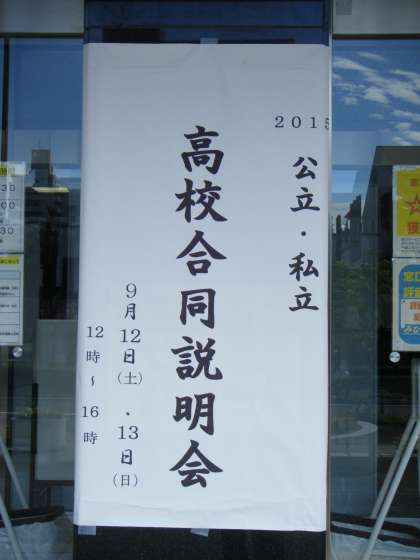 2015
公立・私立
高校合同説明会
9月12日(土)・13日(日)
12時〜16時